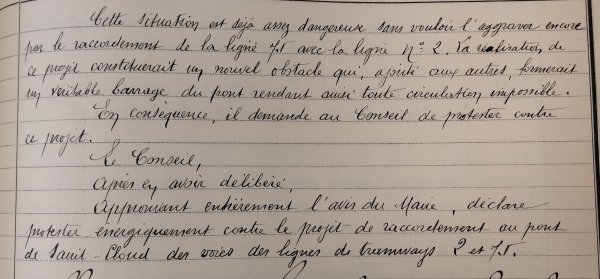 Cette situation est déjà assez dangereuse sans vouloir l'aggraver encore
par le raccordement de la ligne 75 avec la ligne n° 2. La réalisation de
ce projet constituerait un nouvel obstacle qui, ajouté aux autres, formerait
un véritable barrage du pont rendant ainsi toute circulation impossible.
En conséquence, il demande au Conseil de protester contre
ce projet.
Le Conseil,
Après en avoir délibéré,
Approuvant entièrement l'avis du Maire, déclare
protester énergiquement contre le projet de raccordement au pont
de Saint-Cloud des voies des lignes de tramways 2 et 75.